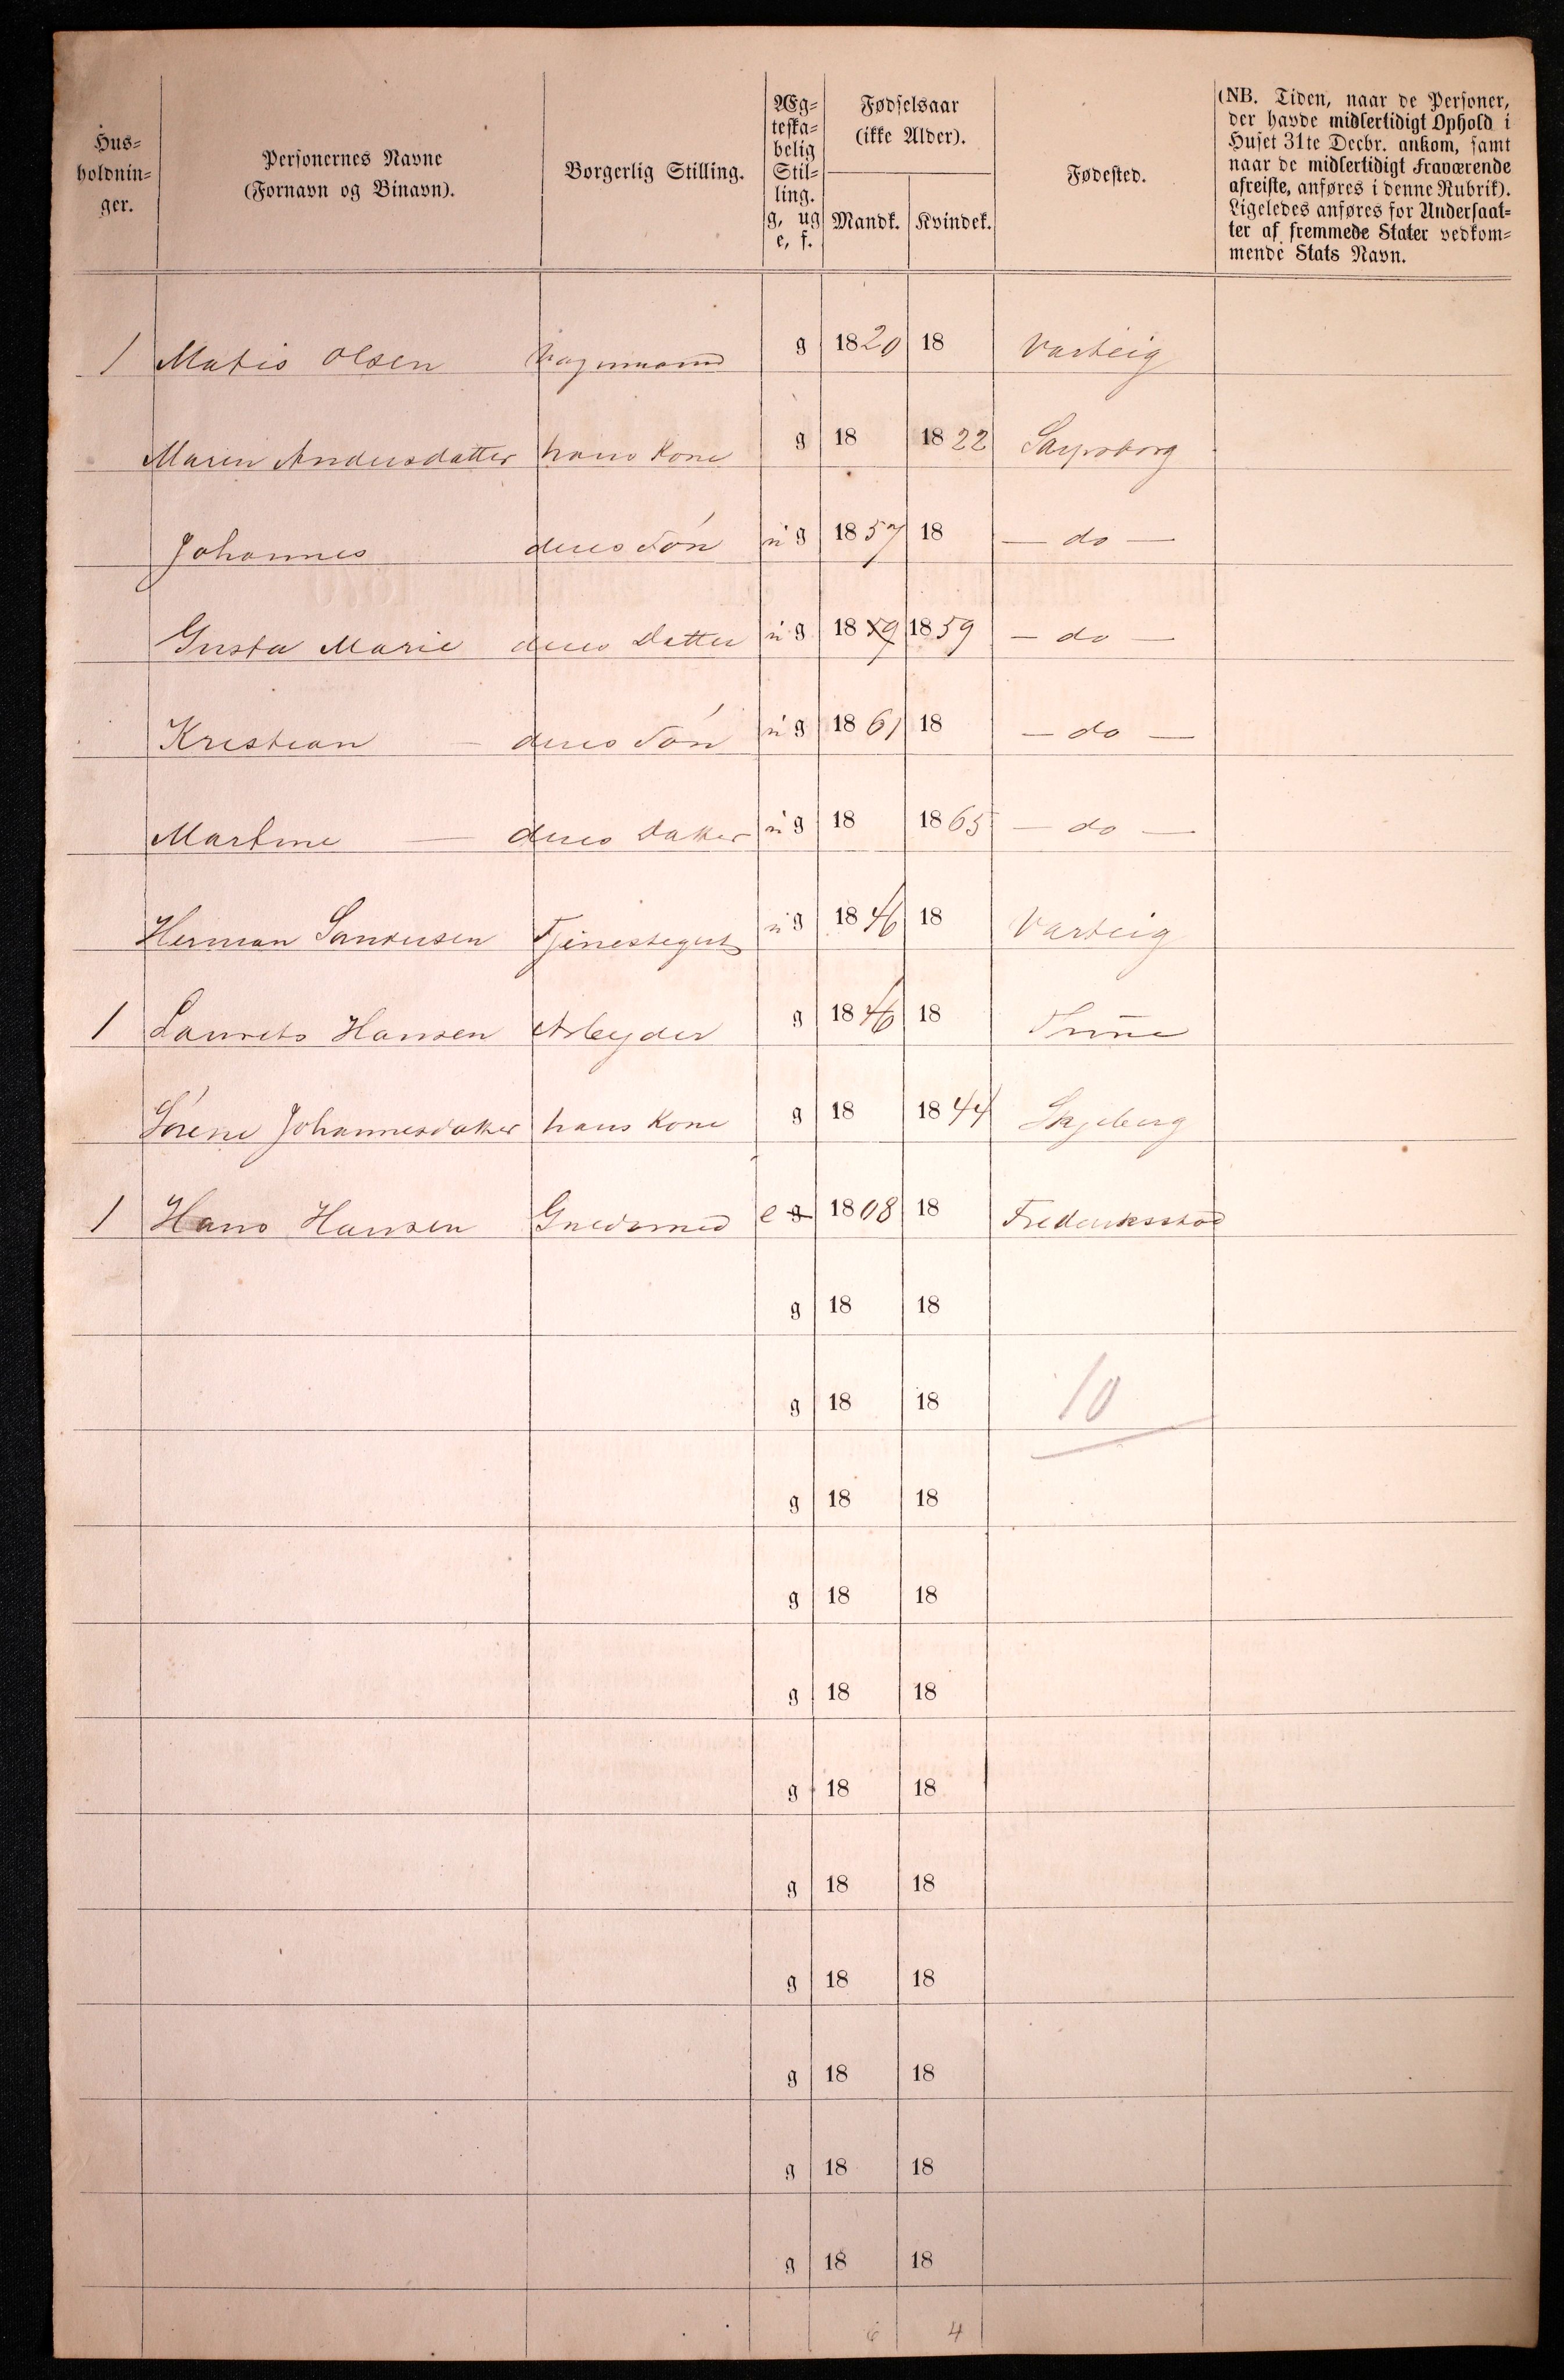 Hus-
holdnin-
ger.
Personernes Navne
(Fornavn og Binavn).
Borgerlig Stilling.
Æg-
teska-
belig
Stil-
ling.
g, ug
e, f.
Fødselsaar
(ikke Alder).
Mandk. Kvindek.
Fødested.
(NB. Tiden, naar de Personer,
der havde midlertidigt Ophold i
Huset 31te Decbr. ankom, samt
naar de midlertidigt fraværende
afreiste, anføres i denne Rubrik).
Ligeledes anføres for Undersaat-
ter af fremmede Stater vedkom-
mende Stats Navn.
1 Matis Olsen Vognmand g 1820 18 Varteig
Maren Andersdatter hans Kone g 18 1822 Sarpsborg
Johannes deres Són ug 1857 18 — do —
Gusta Marie deres Datter ug 1859 1859 — do —
Kristian — deres Són ug 1861 18 — do —
Martine — deres Datter ug 18 1865 — do —
Herman Tjenestegut ug 1846 18 Varteig
1 Laurits Hansen Arbeyder g 1846 18 Tune
Sórene Johannesdatter hans Kone g 18 1844 Skjeberg
1 Hans Hansen e g 1808 18 Frederiksstad
g 18 18
g 18 18 10
g 18 18
g 18 18
g 18 18
g 18 18
g 18 18
g 18 18
g 18 18
g 18 18
g 18 18
6 4